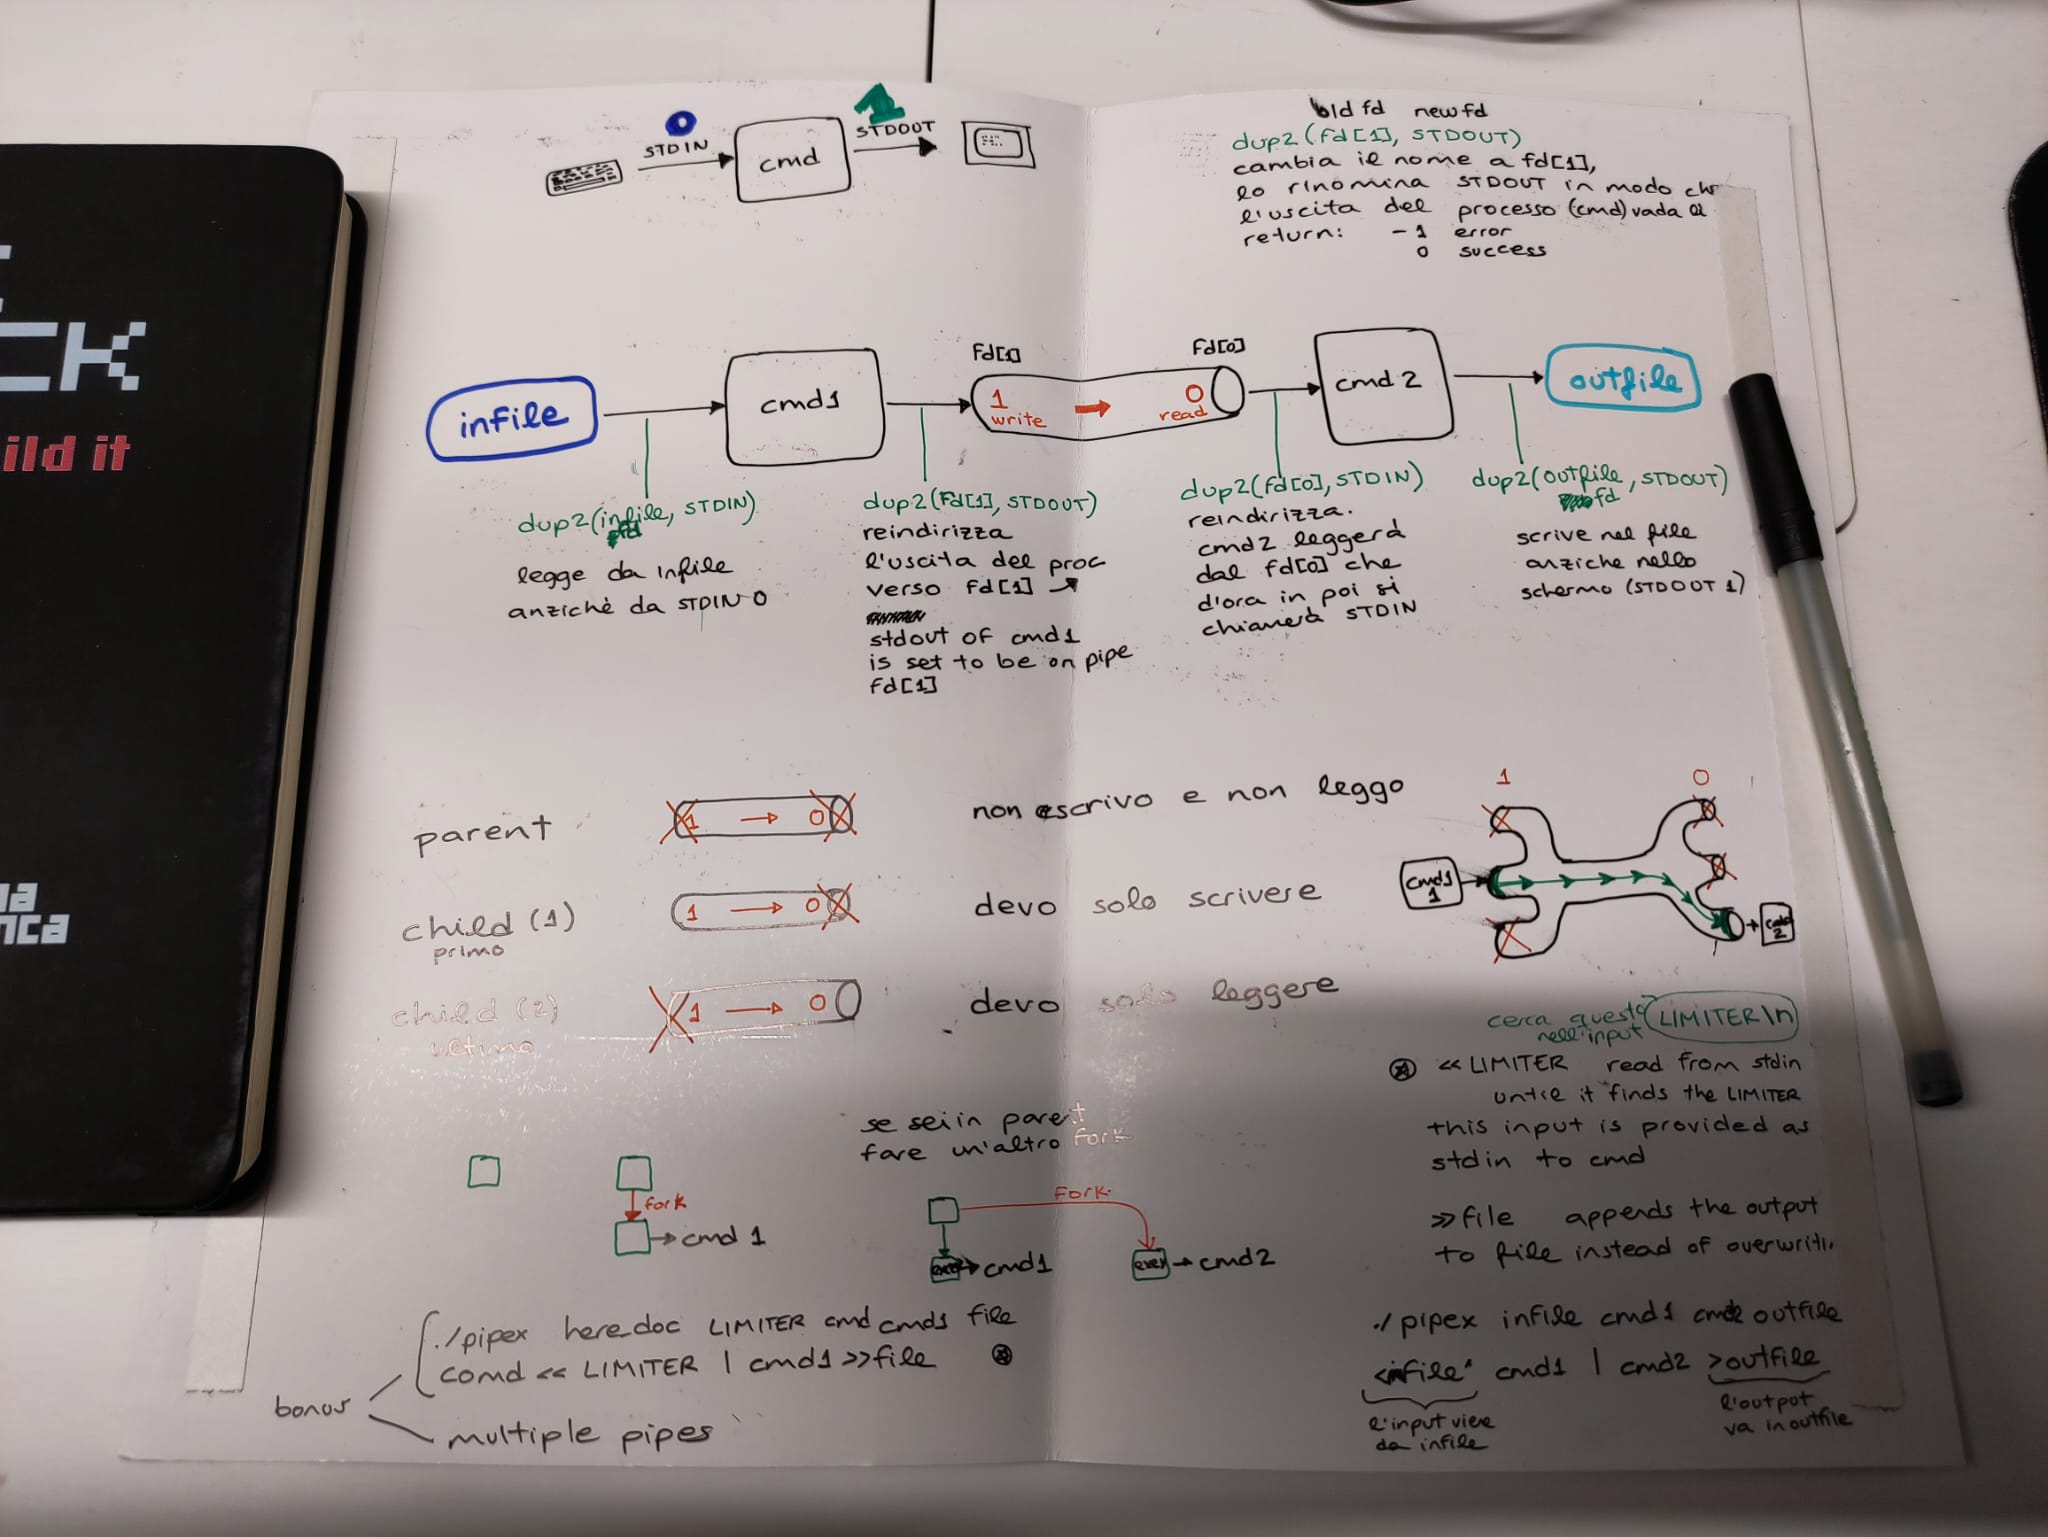 CK
ild it
na
nca
0
STDIN
cmd
1
STDOUT
old fd new fd
dup2(fd[1], STDOUT)
cambia il nome a fd[1],
lo rinomina STDOUT in modo che
l'uscita del processo (cmd) vada lì
return: -1 error
0 success
infile
cmd1
fd[1]
fd[0]
1
write
0
read
cmd 2
outfile
dup2(infile, STDIN)
fd
legge da infile
anzichè da STDIN 0
dup2(fd[1], STDOUT)
reindirizza
l'uscita del proc
verso fd[1]
stdout of cmd1
is set to be on pipe
fd[1]
dup2(fd[0], STDIN)
reindirizza.
cmd2 leggerà
dal fd[0] che
d'ora in poi si
chiamerà STDIN
dup2(outfile, STDOUT)
fd
scrive nel file
anziche nello
schermo (STDOUT 1)
parent
1 0
non scrivo e non leggo
child (1)
primo
1 0
devo solo scrivere
child (2)
ultimo
1 0
devo solo leggere
1 0
cmd1
1
cmd
2
cerca questo LIMITER\n
nell'input
<< LIMITER read from stdin
until it finds the LIMITER
this input is provided as
stdin to cmd
>> file appends the output
to file instead of overwriti
fork
cmd 1
se sei in parent
fare un'altro fork
fork
exec cmd1
exec cmd2
bonus
./pipex here_doc LIMITER cmd cmd1 file
comd << LIMITER | cmd1 >> file
multiple pipes
./pipex infile cmd1 cmd2 outfile
<infile cmd1 | cmd2 >outfile
l'input viene
da infile
l'output
va in outfile